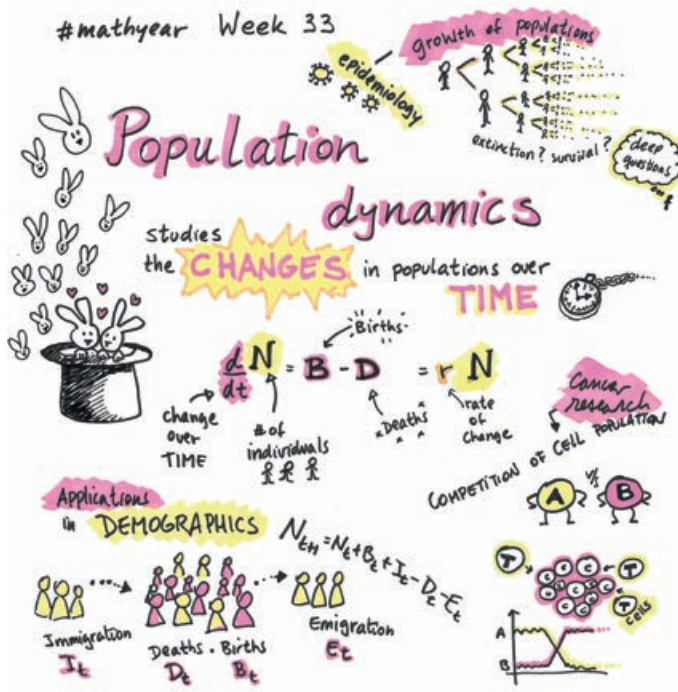 #mathyear Week 33
growth of populations
epidemiology
extinction? survival?
deep
questions
Population
dynamics
studies
the CHANGES in populations over
TIME
Births
d/dt N = B - D = r N
change
over
TIME
# of
individuals
Deaths
rate
of
change
Cancer
research
COMPETITION OF CELL POPULATION
A vs B
Applications
in DEMOGRAPHICS
N_{t+1} = N_t + B_t + I_t - D_t - E_t
Immigration
I_t
Deaths · Births
D_t B_t
Emigration
E_t
T
C C C C C C C C C
T
T
cells
A
B